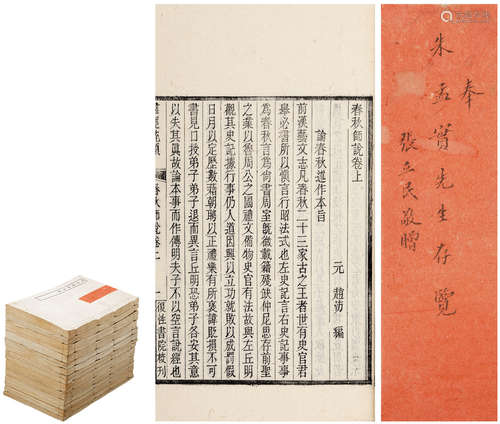 春秋師說卷上
元 趙汸 編
論春秋述作本旨
前漢藝文志凡春秋二十三家古之王者世有史官君
舉必書所以慎言行昭法式也左史記言右史記事事
為春秋言為尚書周室既微載籍殘缺仲尼思存前聖
之業以魯周公之國禮文備物史官有法故與左丘明
觀其史記據行事仍人道因興以立功就敗以成罰假
日月以定歷數藉朝聘以正禮樂有所褒諱貶損不可
書見口授弟子弟子退而異言丘明恐弟子各安其意
以失其真故論本事而作傳明夫子不以空言說經也
春秋師說卷
一 復性書院校刊
奉
朱孟實先生存覽
張立民敬贈